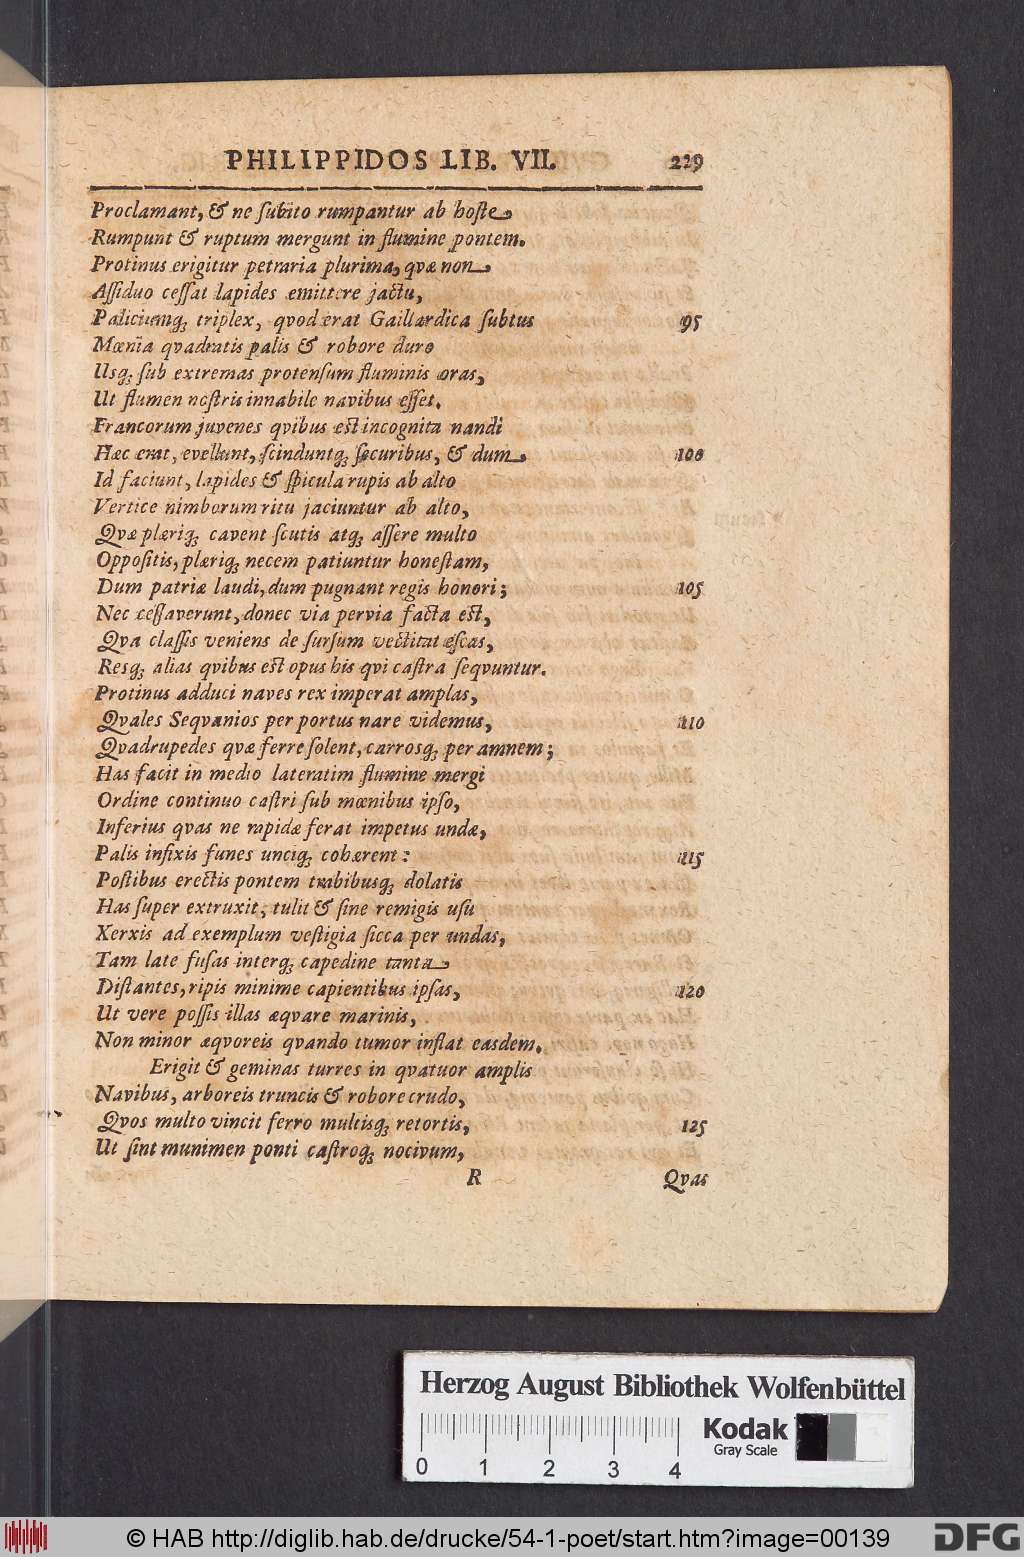 PHILIPPIDOS LIB. VII. 229
Proclamant, & ne ſubito rumpantur ab hoſte
Rumpunt & ruptum mergunt in flumine pontem.
Protinus erigitur petraria plurima, qvæ non
Aſſiduo ceſſat lapides emittere jactu,
Paliciumq; triplex, qvod erat Gaillardica ſubtus 95
Mœnia qvadratis palis & robore duro
Usq; ſub extremas protenſum fluminis oras,
Ut flumen noſtris innabile navibus eſſet.
Francorum juvenes qvibus eſt incognita nandi
Hæc erat, evellunt, ſcinduntq; ſecuribus, & dum 100
Id faciunt, lapides & ſpicula rupis ab alto
Vertice nimborum ritu jaciuntur ab alto,
Qvæ plæriq; cavent ſcutis atq; aſſere multo
Oppoſitis, plæriq; necem patiuntur honeſtam,
Dum patriæ laudi, dum pugnant regis honori; 105
Nec ceſſaverunt, donec via pervia facta eſt,
Qva claſſis veniens de ſurſum vectitat eſcas,
Resq; alias qvibus eſt opus his qvi caſtra ſeqvuntur.
Protinus adduci naves rex imperat amplas,
Qvales Seqvanios per portus nare videmus, 110
Qvadrupedes qvæ ferre ſolent, carrosq; per amnem;
Has facit in medio lateratim flumine mergi
Ordine continuo caſtri ſub mœnibus ipſo,
Inferius qvas ne rapidæ ferat impetus undæ,
Palis infixis funes unciq; cohærent: 115
Poſtibus erectis pontem trabibusq; dolatis
Has ſuper extruxit, tulit & ſine remigis uſu
Xerxis ad exemplum veſtigia ſicca per undas,
Tam late fuſas interq; capedine tanta
Diſtantes, ripis minime capientibus ipſas, 120
Ut vere poſſis illas æqvare marinis,
Non minor æqvoreis qvando tumor inflat easdem.
Erigit & geminas turres in qvatuor amplis
Navibus, arboreis truncis & robore crudo,
Qvos multo vincit ferro multisq; retortis, 125
Ut ſint munimen ponti caſtroq; nocivum,
R Qvas
Herzog August Bibliothek Wolfenbüttel
Kodak
Gray Scale
0 1 2 3 4
© HAB http://diglib.hab.de/drucke/54-1-poet/start.htm?image=00139 DFG